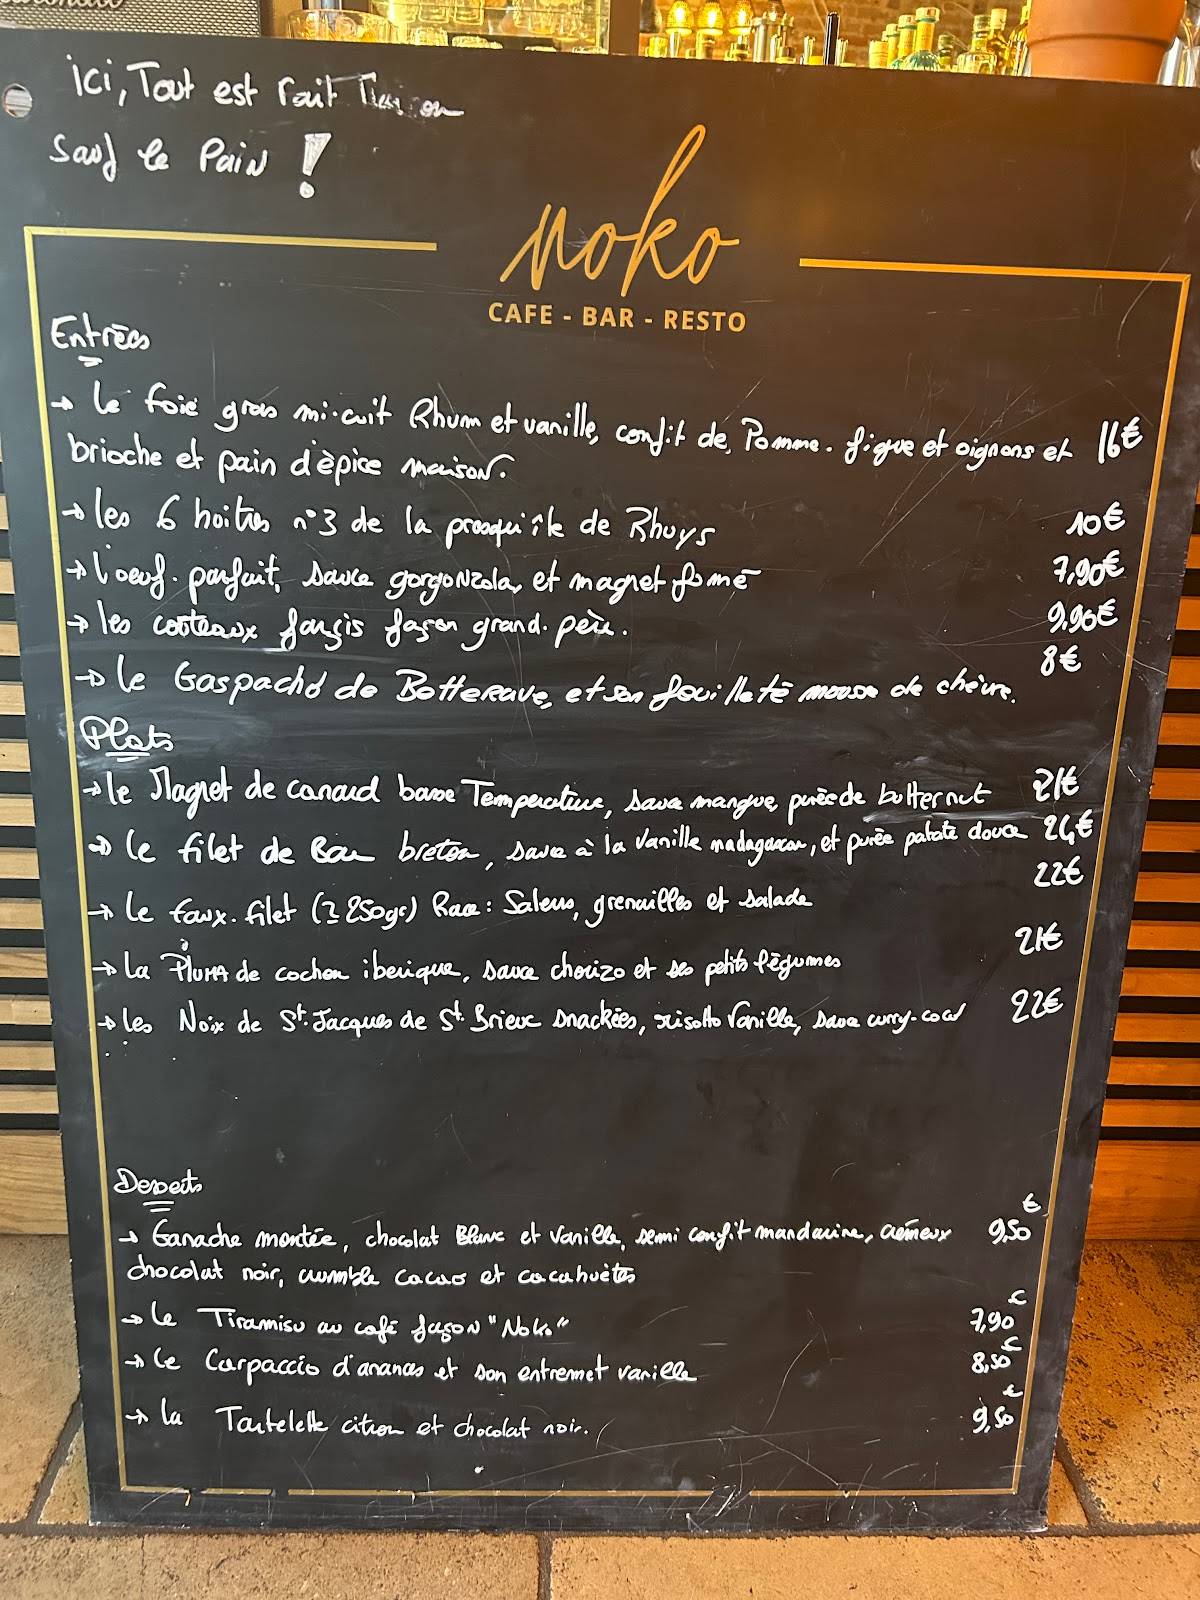 ici, Tout est fait Maison
sauf le Pain !
noko
CAFE - BAR - RESTO
Entrées
→ le foie gras mi-cuit Rhum et vanille, confit de Pomme-figue et oignons et 16€
brioche et pain d'èpice maison.
→ les 6 huitres n°3 de la presqu'île de Rhuys 10€
→ l'oeuf parfait, sauce gorgonzola, et magret fumé 7,90€
→ les couteaux farçis façon grand-père. 9.90€
→ le Gaspacho de Betterave, et son feuilleté mousse de chèvre. 8€
Plats
→ le Magret de canard basse Température, sauce mangue, purée de butternut 21€
→ le filet de Bar breton, sauce à la vanille madagascar, et purée patate douce 24€
→ le faux-filet (± 250gr) Race: Salers, grenailles et salade 22€
→ la PLUMA de cochon iberique, sauce chorizo et ses petits légumes 21€
→ les Noix de St. Jacques de St. Brieuc snackées, risotto vanille, sauce curry-coco 22€
Desserts
→ Ganache montée, chocolat Blanc et vanille, semi confit mandarine, crémeux 9,50€
chocolat noir, crumble cacao et cacahuètes
→ le Tiramisu au café façon "Noko" 7,90€
→ le Carpaccio d'ananas et son entremet vanille 8,50€
→ la Tartelette citron et chocolat noir. 9,50€